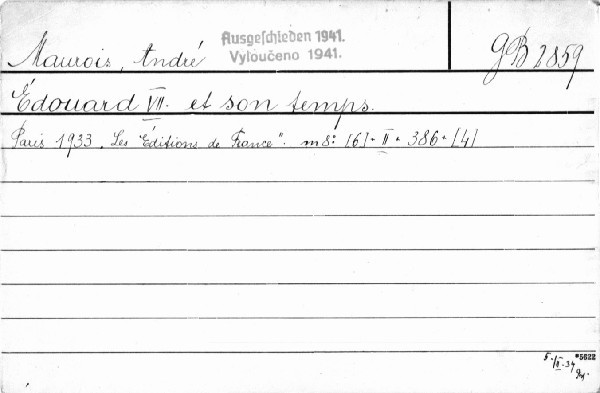 Maurois, André
Ausgeschieden 1941.
Vyloučeno 1941.
GB 2859
Édouard VII. et son temps.
Paris 1933. „Les Éditions de France“. m8° [6]+II+386+[4]
*5622
5./II.34